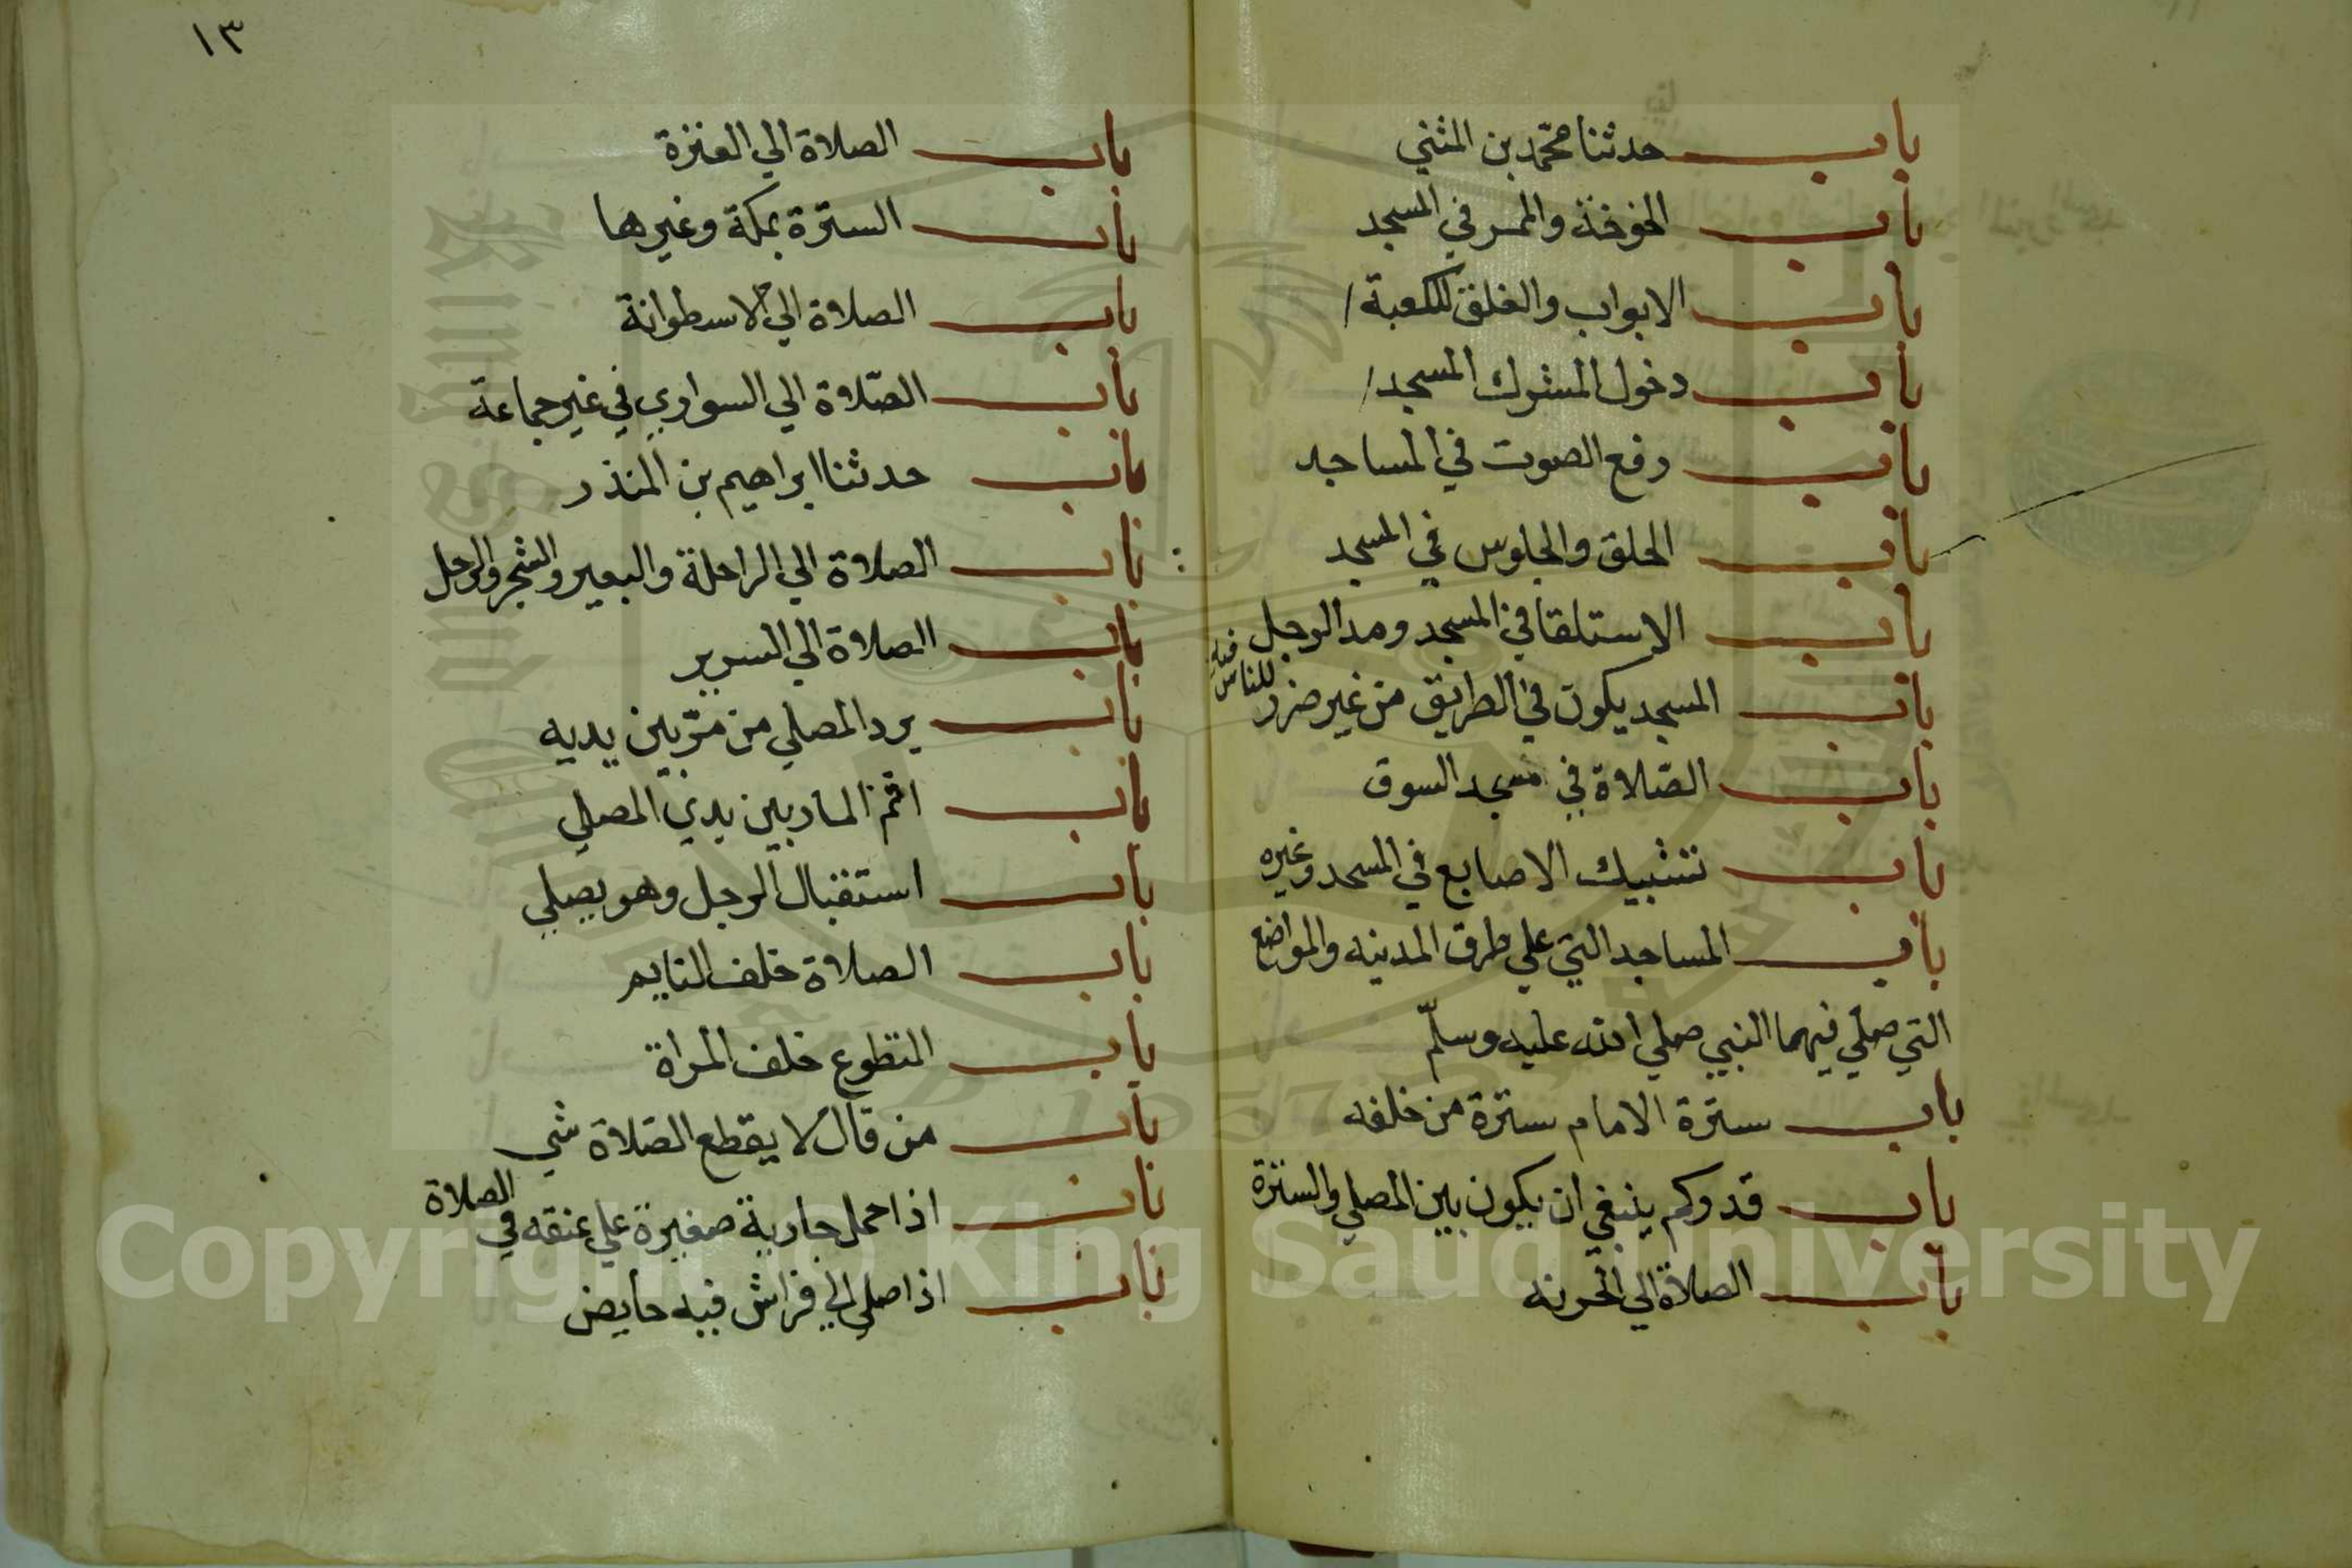 باب حدثنا محمد بن المثني
باب الخوخة والممر في المسجد
باب الابواب والغلق للكعبة /
باب دخول المشرك المسجد /
باب رفع الصوت في المساجد
باب الحلق والجلوس في المسجد
باب الاستلقا في المسجد ومد الرجل فيه
باب المسجد يكون في الطريق من غير ضرر للناس
باب الصّلاة في مسجد السوق
باب تشبيك الاصابع في المسجد وغيره
باب المساجد التي علي طرق المدينه والمواضع
التي صلي فيهما النبي صلي الله عليه وسلّم
باب سترة الامام سترة من خلفه
باب قدر وكم ينبغي ان يكون بين المصلي والسترة
باب الصلاة الي الحربه
١٣
باب الصلاة الي العنزة
باب السترة بمكة وغيرها
باب الصلاة الي الاسطوانة
باب الصّلاة الي السواري في غير جماعة
باب حدثنا ابراهيم بن المنذر
باب الصلاة الي الراحلة والبعير والشجر والرحل
باب الصلاة الي السرير
باب يرد المصلي من مرّ بين يديه
باب اثم المار بين يدي المصلي
باب استقبال الرجل وهو يصلي
باب الصلاة خلف النايم
باب التطوع خلف المراة
باب من قال لا يقطع الصّلاة شي
باب اذا حمل جارية صغيرة علي عنقه في الصلاة
باب اذا صلي الي فراش فيه حايض
Copyright © King Saud University
1957